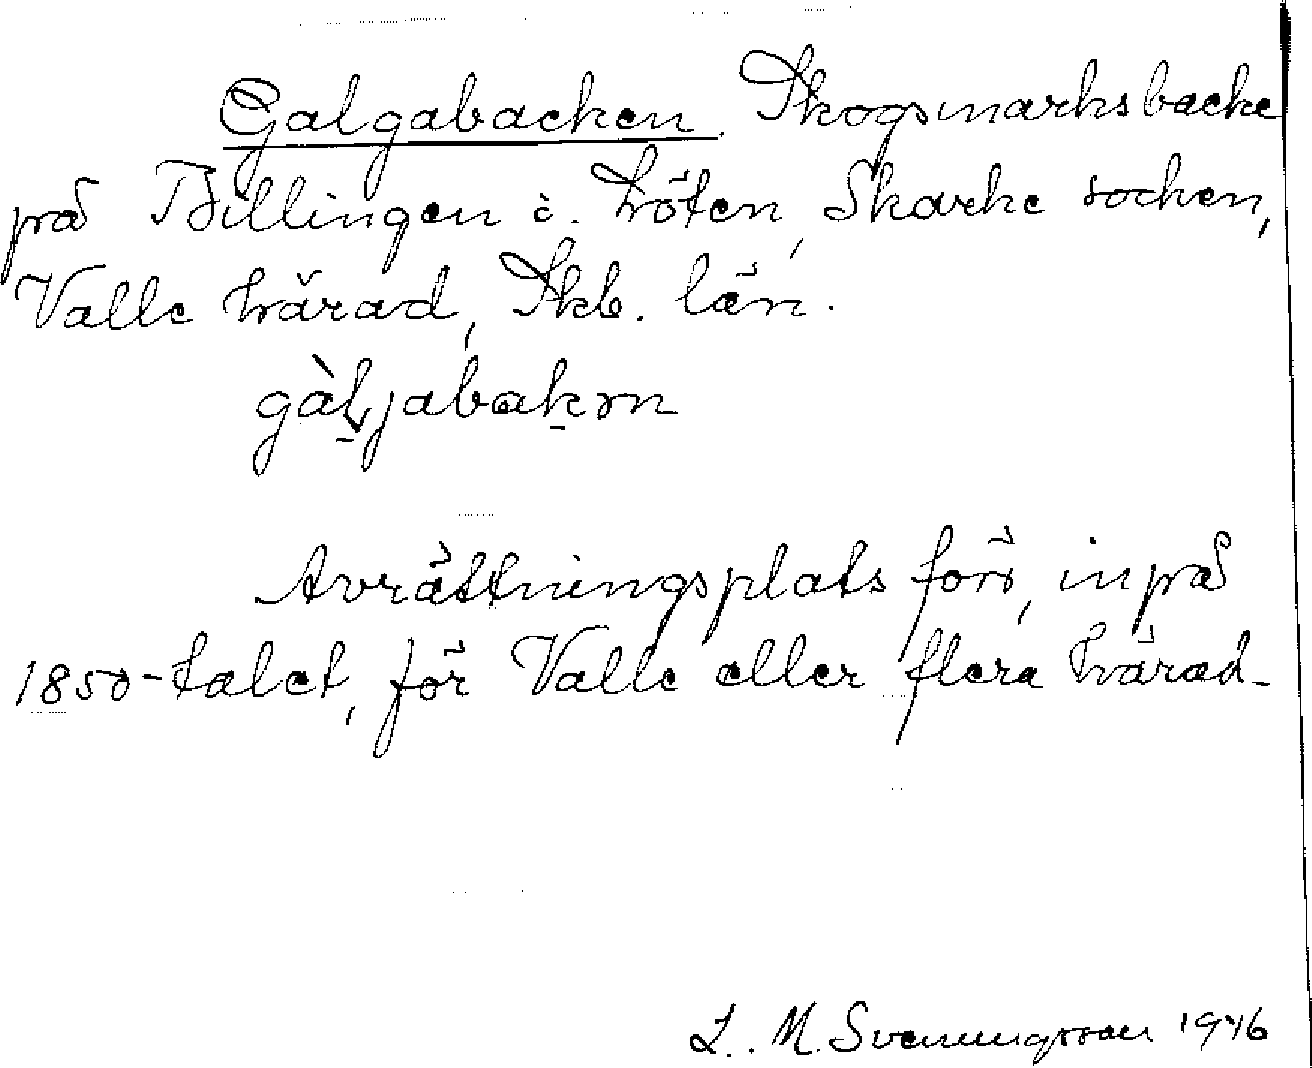 Galgabacken. Skogsmarksbacke
på Billingen i Höten, Skarke socken,
Valle härad, Skb. län.
gàljabakɤn
Avrättningsplats förr, inpå
1850-talet, för Valle eller flera härad.
L. M. Svenungsson 1946